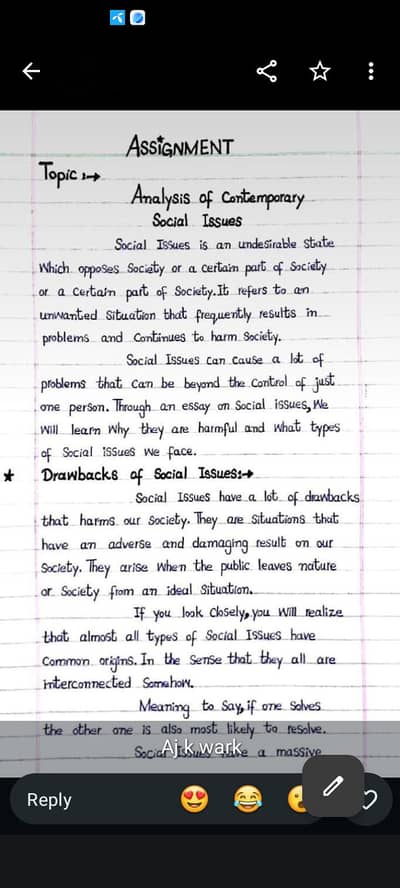 ASSIGNMENT
Topic :→
Analysis of Contemporary
Social Issues
Social Issues is an undesirable state
Which opposes Society or a certain part of Society
or a certain part of Society. It refers to an
unwanted Situation that frequently results in
problems and Continues to harm Society.
Social Issues can cause a lot of
problems that can be beyond the control of just
one person. Through an essay on Social issues, We
Will learn Why they are harmful and What types
of Social issues We face.
★ Drawbacks of Social Issues:→
Social Issues have a lot of drawbacks
that harms our Society. They are situations that
have an adverse and damaging result on our
Society. They arise When the public leaves nature
or Society from an ideal Situation.
If you look Closely, you Will realize
that almost all types of Social Issues have
Common origins. In the Sense that they all are
interconnected Somehow.
Meaning to Say, if one Solves
the other one is also most likely to resolve.
Social Issues have a massive
Aj k wark
Reply